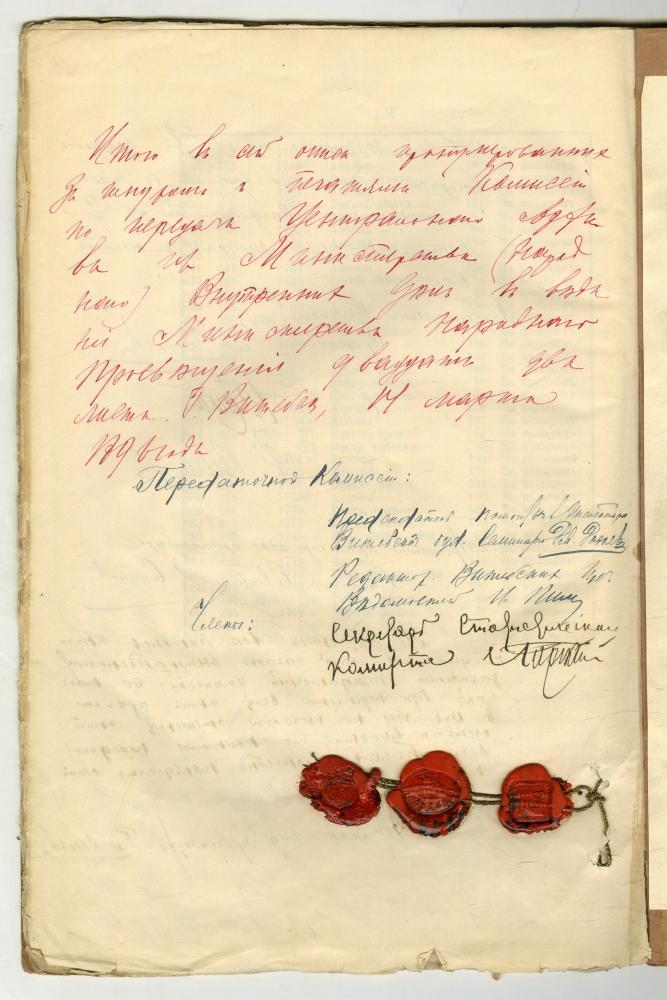 Итого в сей описи пронумерованных
за шнуром и печатями Комиссіи
по передачи Центральнаго Архи
ва из Министерства (народ
наго) Внутренних Дѣл в вѣдѣ
ніе Министерства народнаго
просвѣщенія двадцать два
листа. Г. Витебск, 14 марта
года
Передаточной Комиссіи:
Председатель
Витебской губ. Семинаріи
Редактор Витебских Губ.
Вѣдомостей
Члены:
Секретарь Статистическаго
Комитета